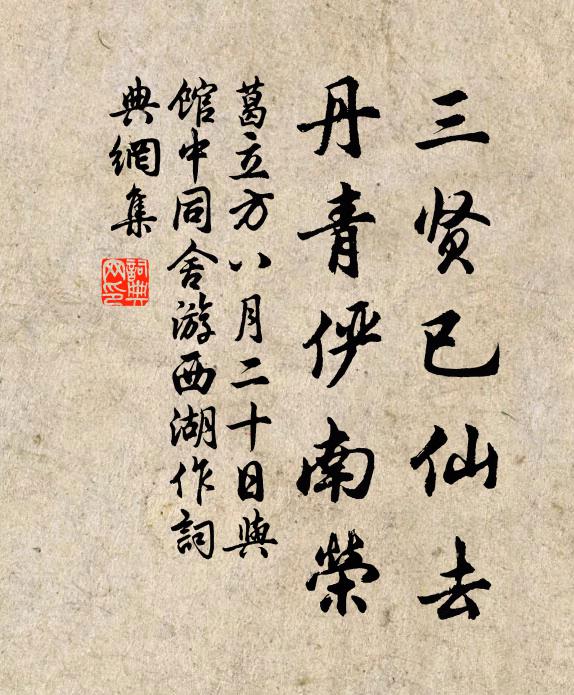 三贤已仙去
丹青俨南榮
葛立方八月二十日與
館中同舍游西湖作詞
典網集
詞典网印